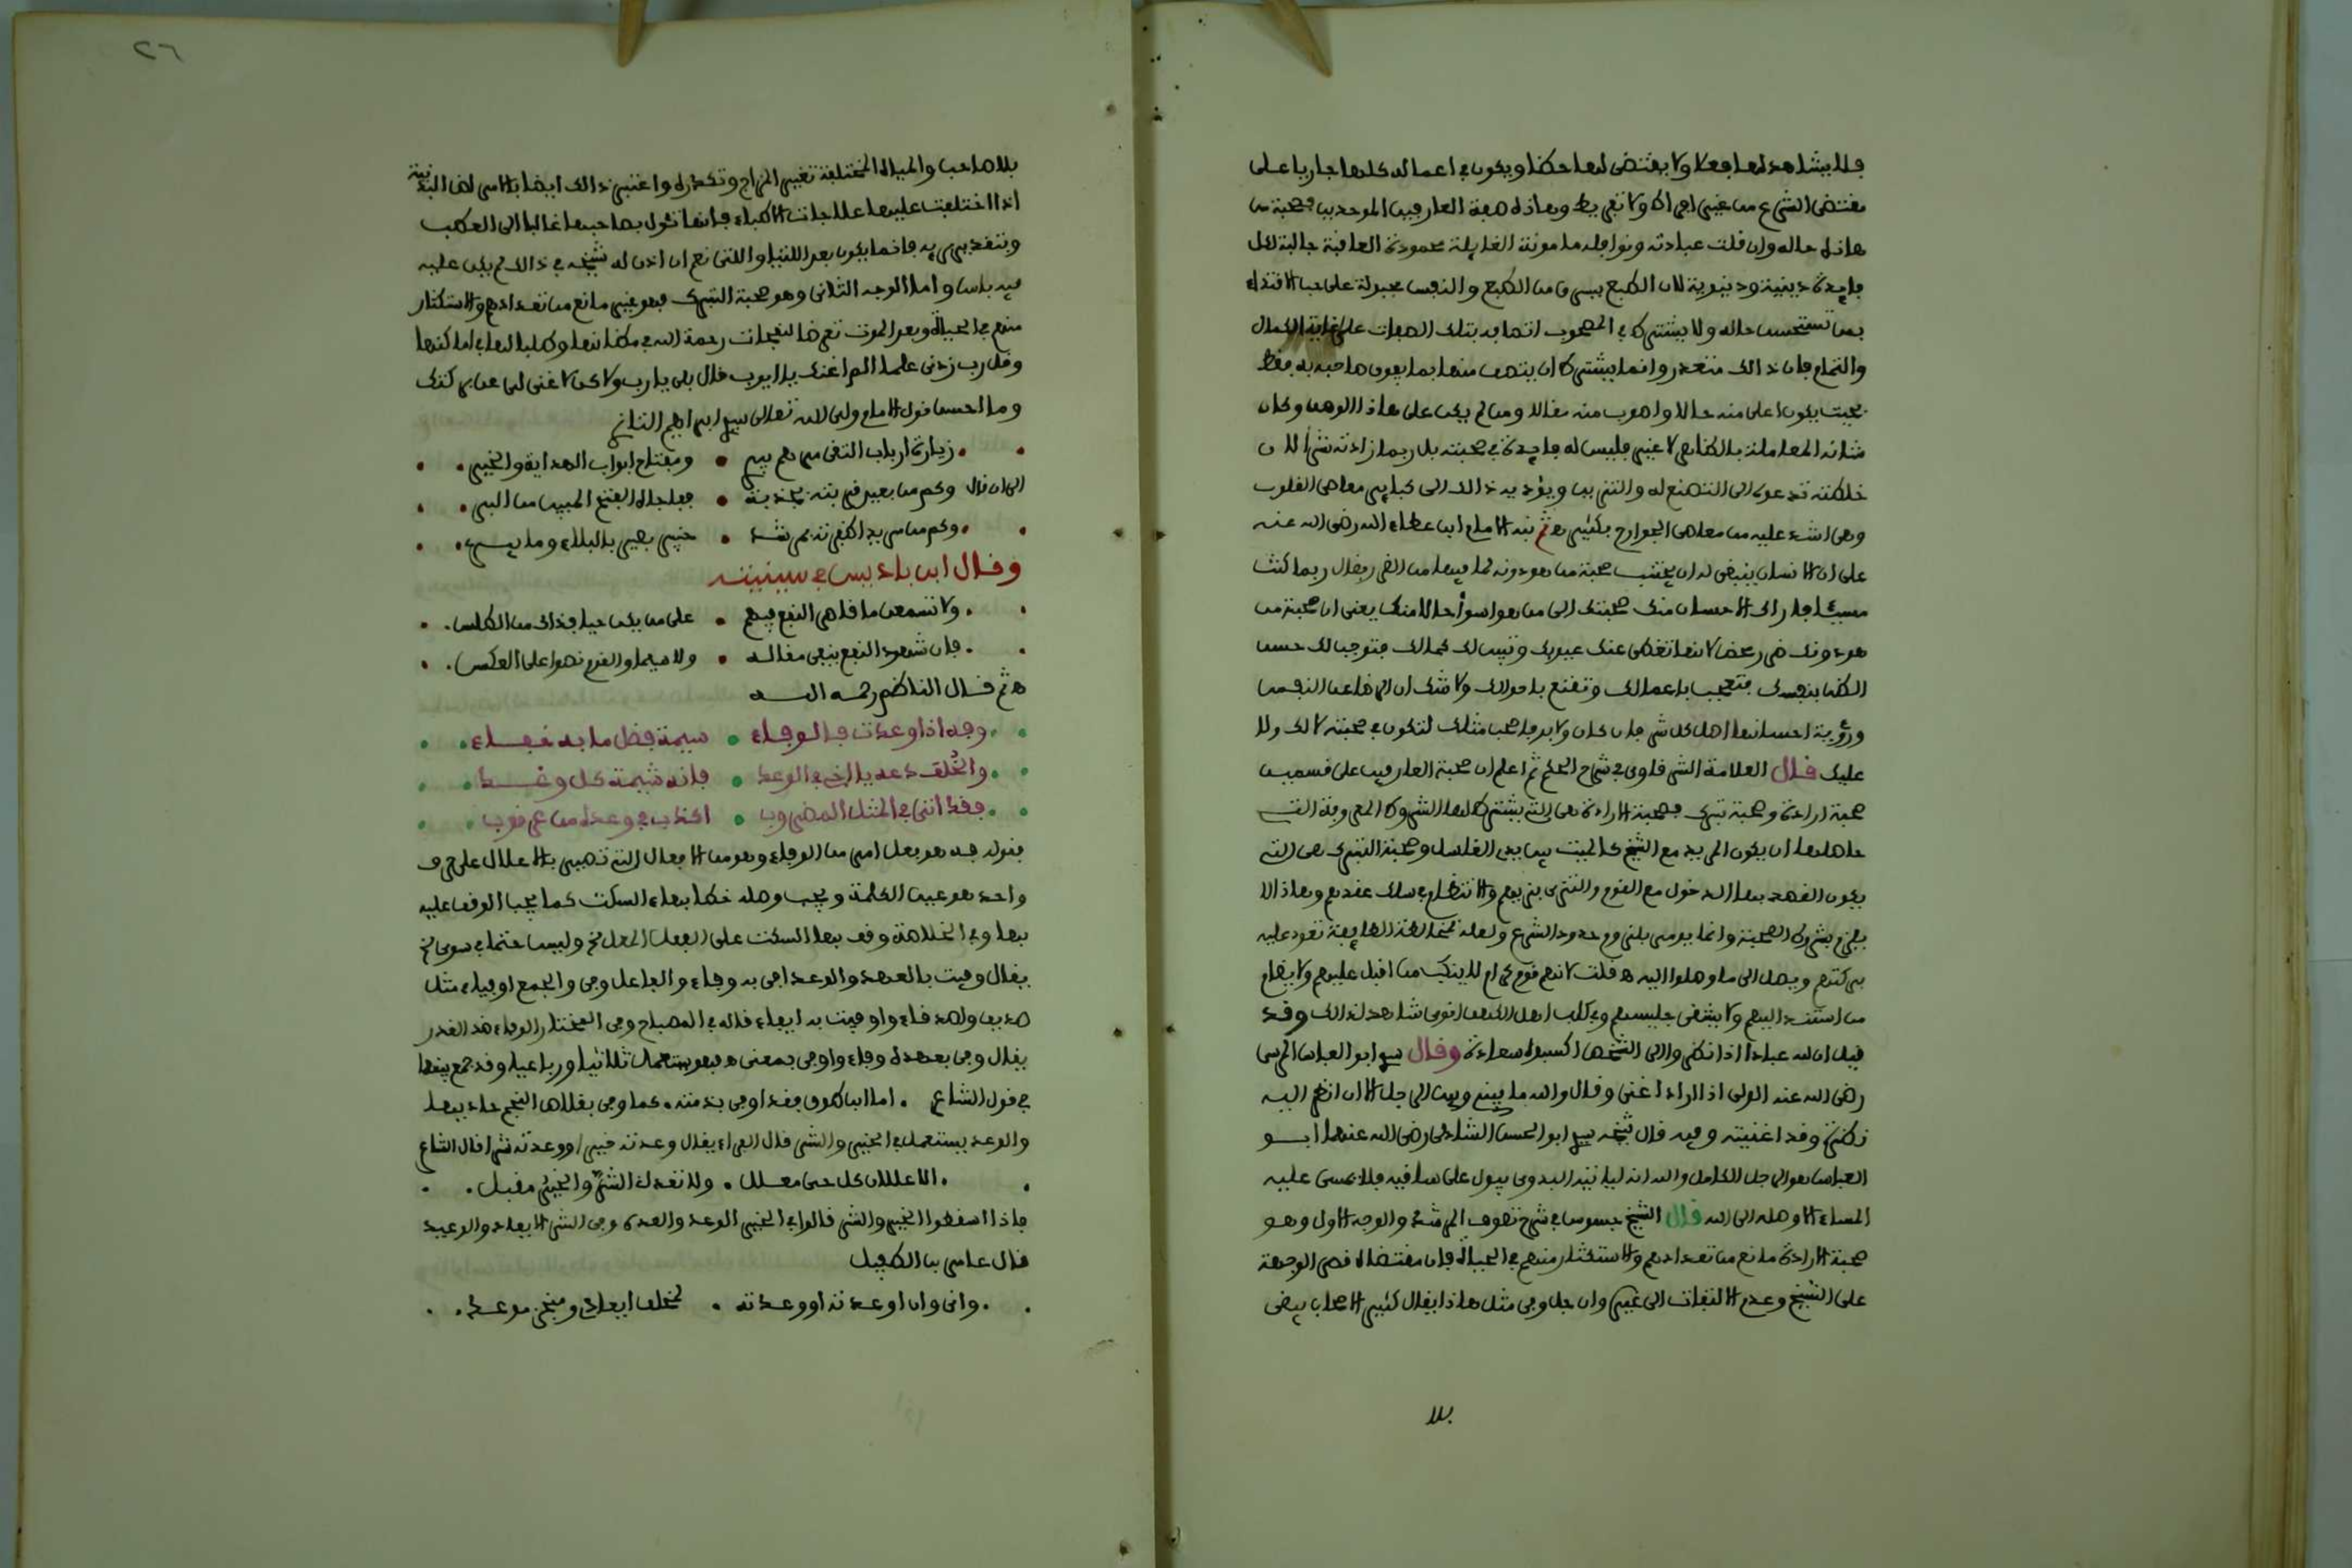 فلا يشاهد لها فعلا ولا يقتضى لها حظا ويكون في اعماله كلها جاريا على
مقتضى الشرع من غير افراط ولا تفريط وهاذه صفة العارفين الموحدين فصحبة من
هاذه حاله وان قلت عبادته ونوافله مامونة الغايلة محمودة العاقبة جالبة لكل
فايدة دينية ودنيوية لان الطبع يسرق من الطبع والنفس مجبولة على حب الاقتداء
بمن تستحسن حاله ولا يشترط في المصحوب اتصافه بتلك الصفات على غاية الكمال
والتمام فان ذالك متعذر وانما يشترط ان يتصف منها بما يفوق صاحبه به فقط
بحيث يكون اعلى منه حالا واصوب منه مقالا ومن لم يكن على هاذا الوصف وكان
شانه المعاملة بالظاهر لا غير فليس له فايدة في صحبته بل ربما زادته شرا لان
خلطته تدعوه الى التصنع له والتزين ويؤديه ذالك الى كباير معاصى القلوب
وهى اشد عليه من معاصى الجوارح بكثير ثم نبه الامام ابن عطاء الله رضى الله عنه
على ان الانسان ينبغى له ان يجتنب صحبة من هو دونه لما فيها من الضرر فقال ربما كنت
مسيئا فاراك الاحسان منك صحبتك الى من هو اسوأ حالا منك يعنى ان صحبة من
هو دونك ضرر محض لانها تغطى عنك عيوبك وتبين لك كمالك فتوجب لك حسن
الظن بنفسك فتعجب باعمالك وتقنع باحوالك ولا شك ان الرضا عن النفس
ورؤية احسانها اصل كل شر فان كان ولا بد فاصحب مثلك لتكون في صحبته لا لك ولا
عليك قال العلامة الشرقاوى في شرح الحكم ثم اعلم ان صحبة العارفين على قسمين
صحبة ارادة وصحبة تبرك فصحبة الارادة هى التى يشترط لها الشروط المعروفة التى
حاصلها ان يكون المريد مع الشيخ كالميت بين يدى الغاسل وصحبة التبرك هى التى
يكون القصد بها الدخول مع القوم والتزيى بزيهم والانتظام في سلك عقدهم وهاذا لا
يلزم بشروط الصحبة وانما يومر بلزوم حدود الشرع ولعله بمخالطة الطايفة تعود عليه
بركتهم ويصل الى ما وصلوا اليه قلت لانهم قوم كرام لا يخيب من اقبل عليهم ولا يضام
من استند اليهم ولا يشقى جليسهم وفي كلب اهل الكهف اقوى شاهد لذالك وقد
قيل ان لله عبادا اذا نظروا الى الشخص اكسبوه سعادة وقال سيدي ابو العباس المرسى
رضى الله عنه الولى اذا اراد اغنى وقال والله ما بينى وبين الرجل الا ان انظر اليه
نظرة وقد اغنيته وفيه قال شيخه سيدي ابو الحسن الشاذلى رضى الله عنهما ابو
العباس هو الرجل الكامل والله انه لياتيه البدوى يبول على ساقيه فلا يمسى عليه
المساء الا وصله الى الله قال الشيخ جسوس في شرح تصوف المرشد والوجه الاول وهو
صحبة الارادة مانع من تعدادهم والاستكثار منهم في الحياة فان مقتضاه قصر الوجهة
على الشيخ وعدم الالتفات الى غيره وان جل وفي مثل هاذا يقال كثير الاصحاب يبقى
بلا
٢٦
بلا صاحب والمياه المختلفة تغير المزاج وتكدره واعتبر ذالك ايضا بالامراض البدنية
اذا اختلفت عليها علاجات الاطباء فانها تئول بصاحبها غالبا الى العطب
وبتقدير برء فانما يكون بعد اللتيا والتى نعم ان اذن له شيخه في ذالك لم يكن عليه
فيه باس واما الوجه الثانى وهو صحبة التبرك فهو غير مانع من تعدادهم والاستكثار
منهم في الحياة وبعد الموت تعرضا لنفحات رحمة الله في مظانها وطلبا لها في اماكنها
وقل رب زدنى علما الم اغنك يا ايوب قال بلى يا رب ولاكن لا غنى لى عن بركتك
وما احسن قول الامام ولى الله تعالى سيدي ابراهيم التازى
زيارة ارباب التقى مرهم يبرى • ومفتاح ابواب الهداية والخير
الى ان قال وكم من بعيد قربته بجذبة • ففاجاه الفتح المبين من البر
وكم من مريد اظفرته بمرشد • خبير بصير بالبلاء وما يبرى
وقال ابن باديس في سينيته
ولا تسمعن ما قاصر النفع فيهم • على من يكن حيا فذاك من الطلس
فان شهود النفع ينفى مقاله • ولا سيما والقوم نصوا على العكس
ثم قال الناظم رحمه الله
وفه اذا وعدت فالوفاء • سيمة فضل ما به خفاء
والخلف دعه يا اخى في الوعد • فانه شيمة كل وغد
فقد اتى في المثل المضروب • اكذب في وعده من عرقوب
بقوله فه هو فعل امر من الوفاء وهو من الافعال التى تصير بالاعلال على حرف
واحد هو عين الكلمة ويجب وصله خطا بهاء السكت كما يجب الوقف عليه
بها وفي الخلاصة وقف بها السكت على الفعل المعل الخ وليس حتما في سوى الخ
يقال وفيت بالعهد والوعد افى به وفاء والفاعل وفى والجمع اوفياء مثل
صديق واصدقاء واوفيت به ايفاء قاله في المصباح وفى المختار الوفاء ضد الغدر
يقال وفى بعهده وفاء واوفى بمعنى فهو يستعمل ثلاثيا ورباعيا وقد جمع بينهما
في قول الشاعر • اما ابن طوق فقد اوفى بذمته • كما وفى بقلاص النجم حاديها
والوعد يستعمل في الخير والشر قال الفراء يقال وعدته خيرا ووعدته شرا قال الشاعر
الا عللان كل حى معلل • ولا تعدانى الشر والخير مقبل
فاذا اسقطوا الخير والشر قالوا في الخير الوعد والعدة وفى الشر الايعاد والوعيد
قال عامر بن الطفيل
وانى وان اوعدته او وعدته • لمخلف ايعادى ومنجز موعدى